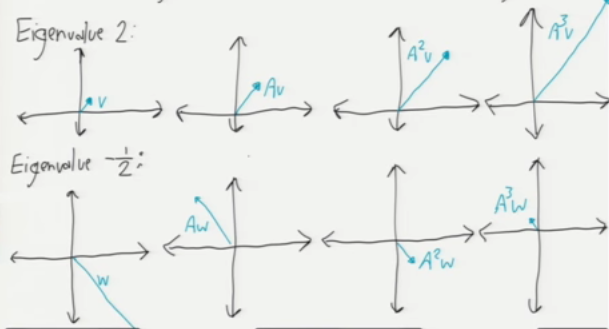 Eigenvalue 2:
v
Av
A²v
A³v
Eigenvalue -1/2:
w
Aw
A²w
A³w